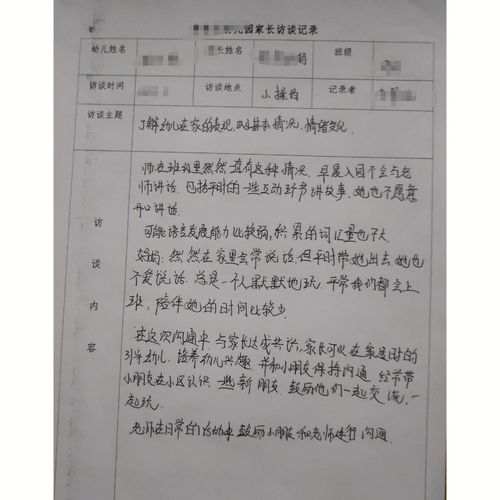 儿园家长访谈记录
幼儿姓名 长姓名 班级
访谈时间 访谈地点 小操场 记录者
访谈主题 了解幼儿在家的表现,以及基本情况、情绪变化
访谈内容
师:在班级里然然一直有这种情况,早晨入园不会与老
师讲话,包括平时的一些互动环节讲故事,她也不愿意
开口讲话。
可能语言发展能力比较弱,积累的词汇量也不大
妈妈:然然在家里会常说话,但平时带她出去,她也
不爱说话,总是一个人默默地玩。平常我们都会上
班,陪伴她的时间比较少。
在这次沟通中,与家长达成共识,家长可以在家及时的
引导幼儿,培养幼儿兴趣,并和小朋友保持沟通,经常带
小朋友在小区认识一些新朋友,鼓励他们一起交流,一
起玩。
老师在日常的活动中鼓励小朋友和老师进行沟通